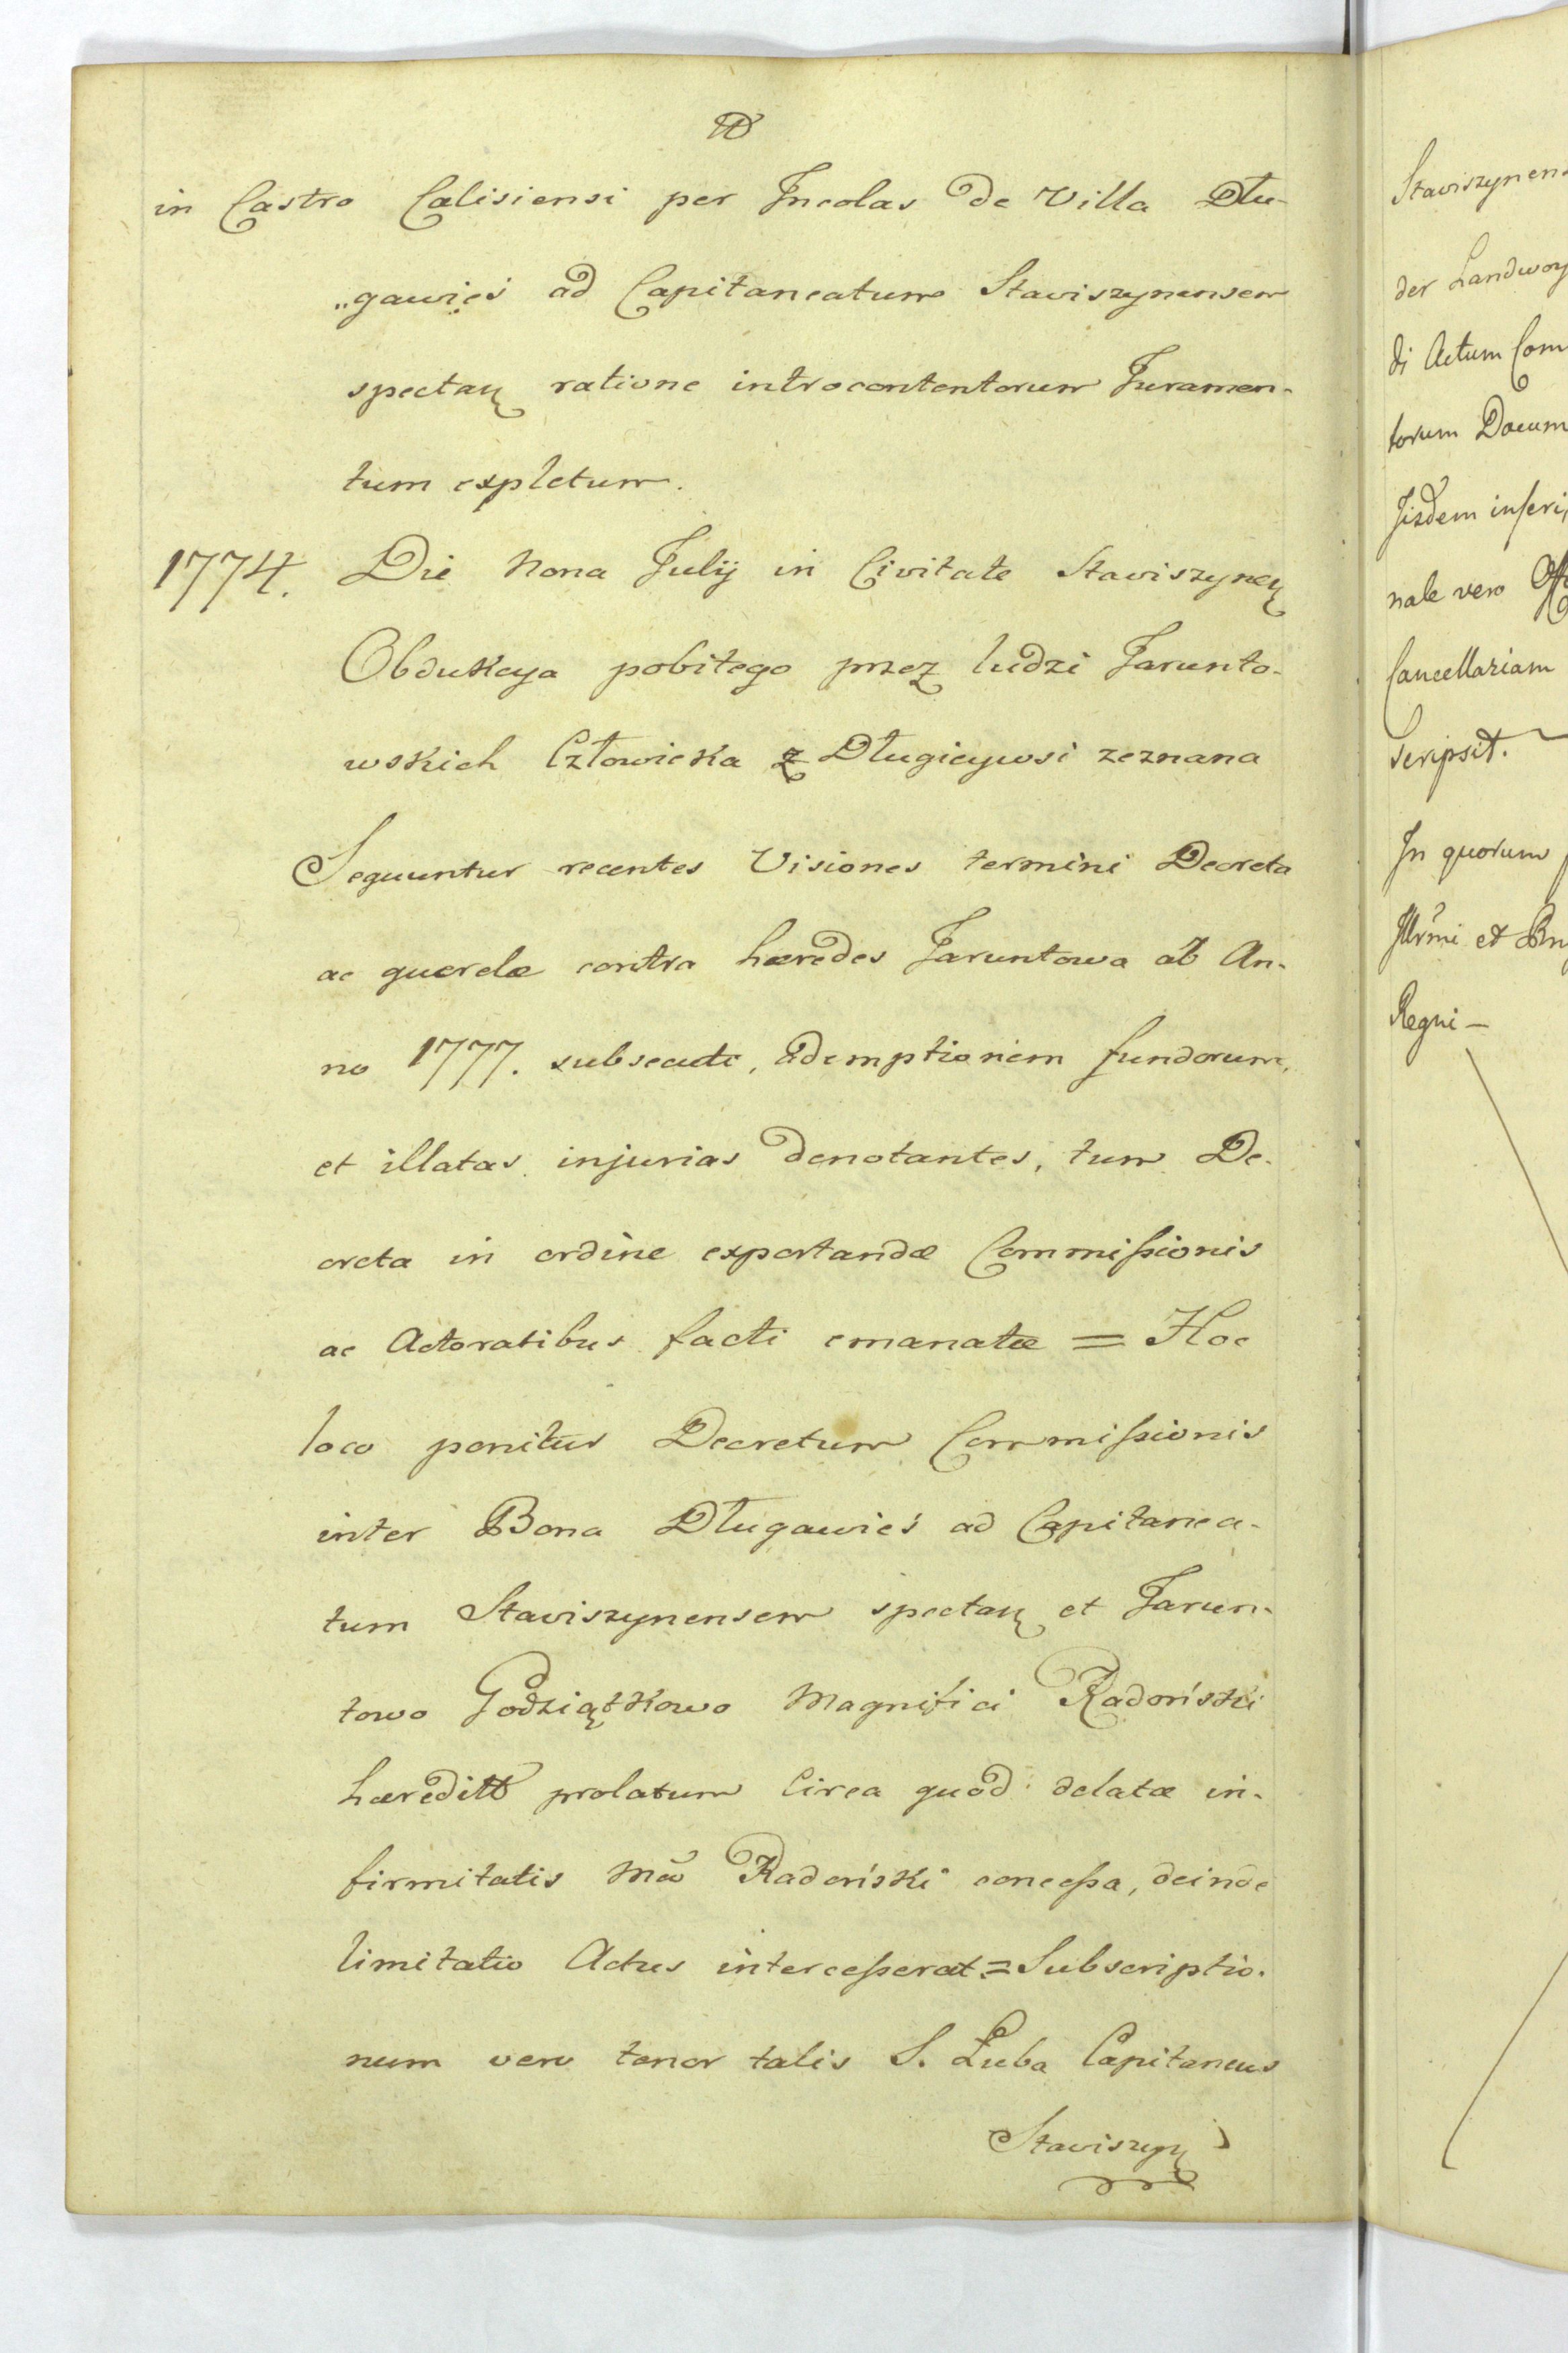 in Castro Calisiensi per Incolas de Villa Dłu-
„gawieś ad Capitaneatum Staviszynensem
spectan̄ ratione introcontentorum Juramen-
tum expletum.
1774. Die Nona Julij in Civitate Staviszynen̄
Obdukcya pobitego przez ludzi Jarunto-
wskich Człowieka z Długieywsi zeznana
Sequuntur recentes Visiones termini Decreta
ac querelæ contra hæredes Jaruntowa ab An-
no 1777. subsecute, ademptionem fundorum,
et illatas injurias denotantes, tum De-
creta in ordine exportandæ Commissionis
ac Actoratibus facti emanatæ = Hoc
loco ponitur Decretum Commissionis
inter Bona Długawieś ad Capitanea-
tum Staviszynensem spectan̄ et Jarun-
towo Godziątkowo Magnifici Radoński
hæredit prolatum Circa quod delatæ in-
firmitatis Mci Radoński concessa, deinde
limitatio Actus intercesserat = Subscriptio-
num vero tenor talis S. Łuba Capitaneus
Staviszyn̄
Staviszynens
der Landwoy
di Actum Com
torum Docum
Jisdem inseri
nale vero Offi
Cancellariam
scripsit.
In quorum
Illrmi et
Regni –